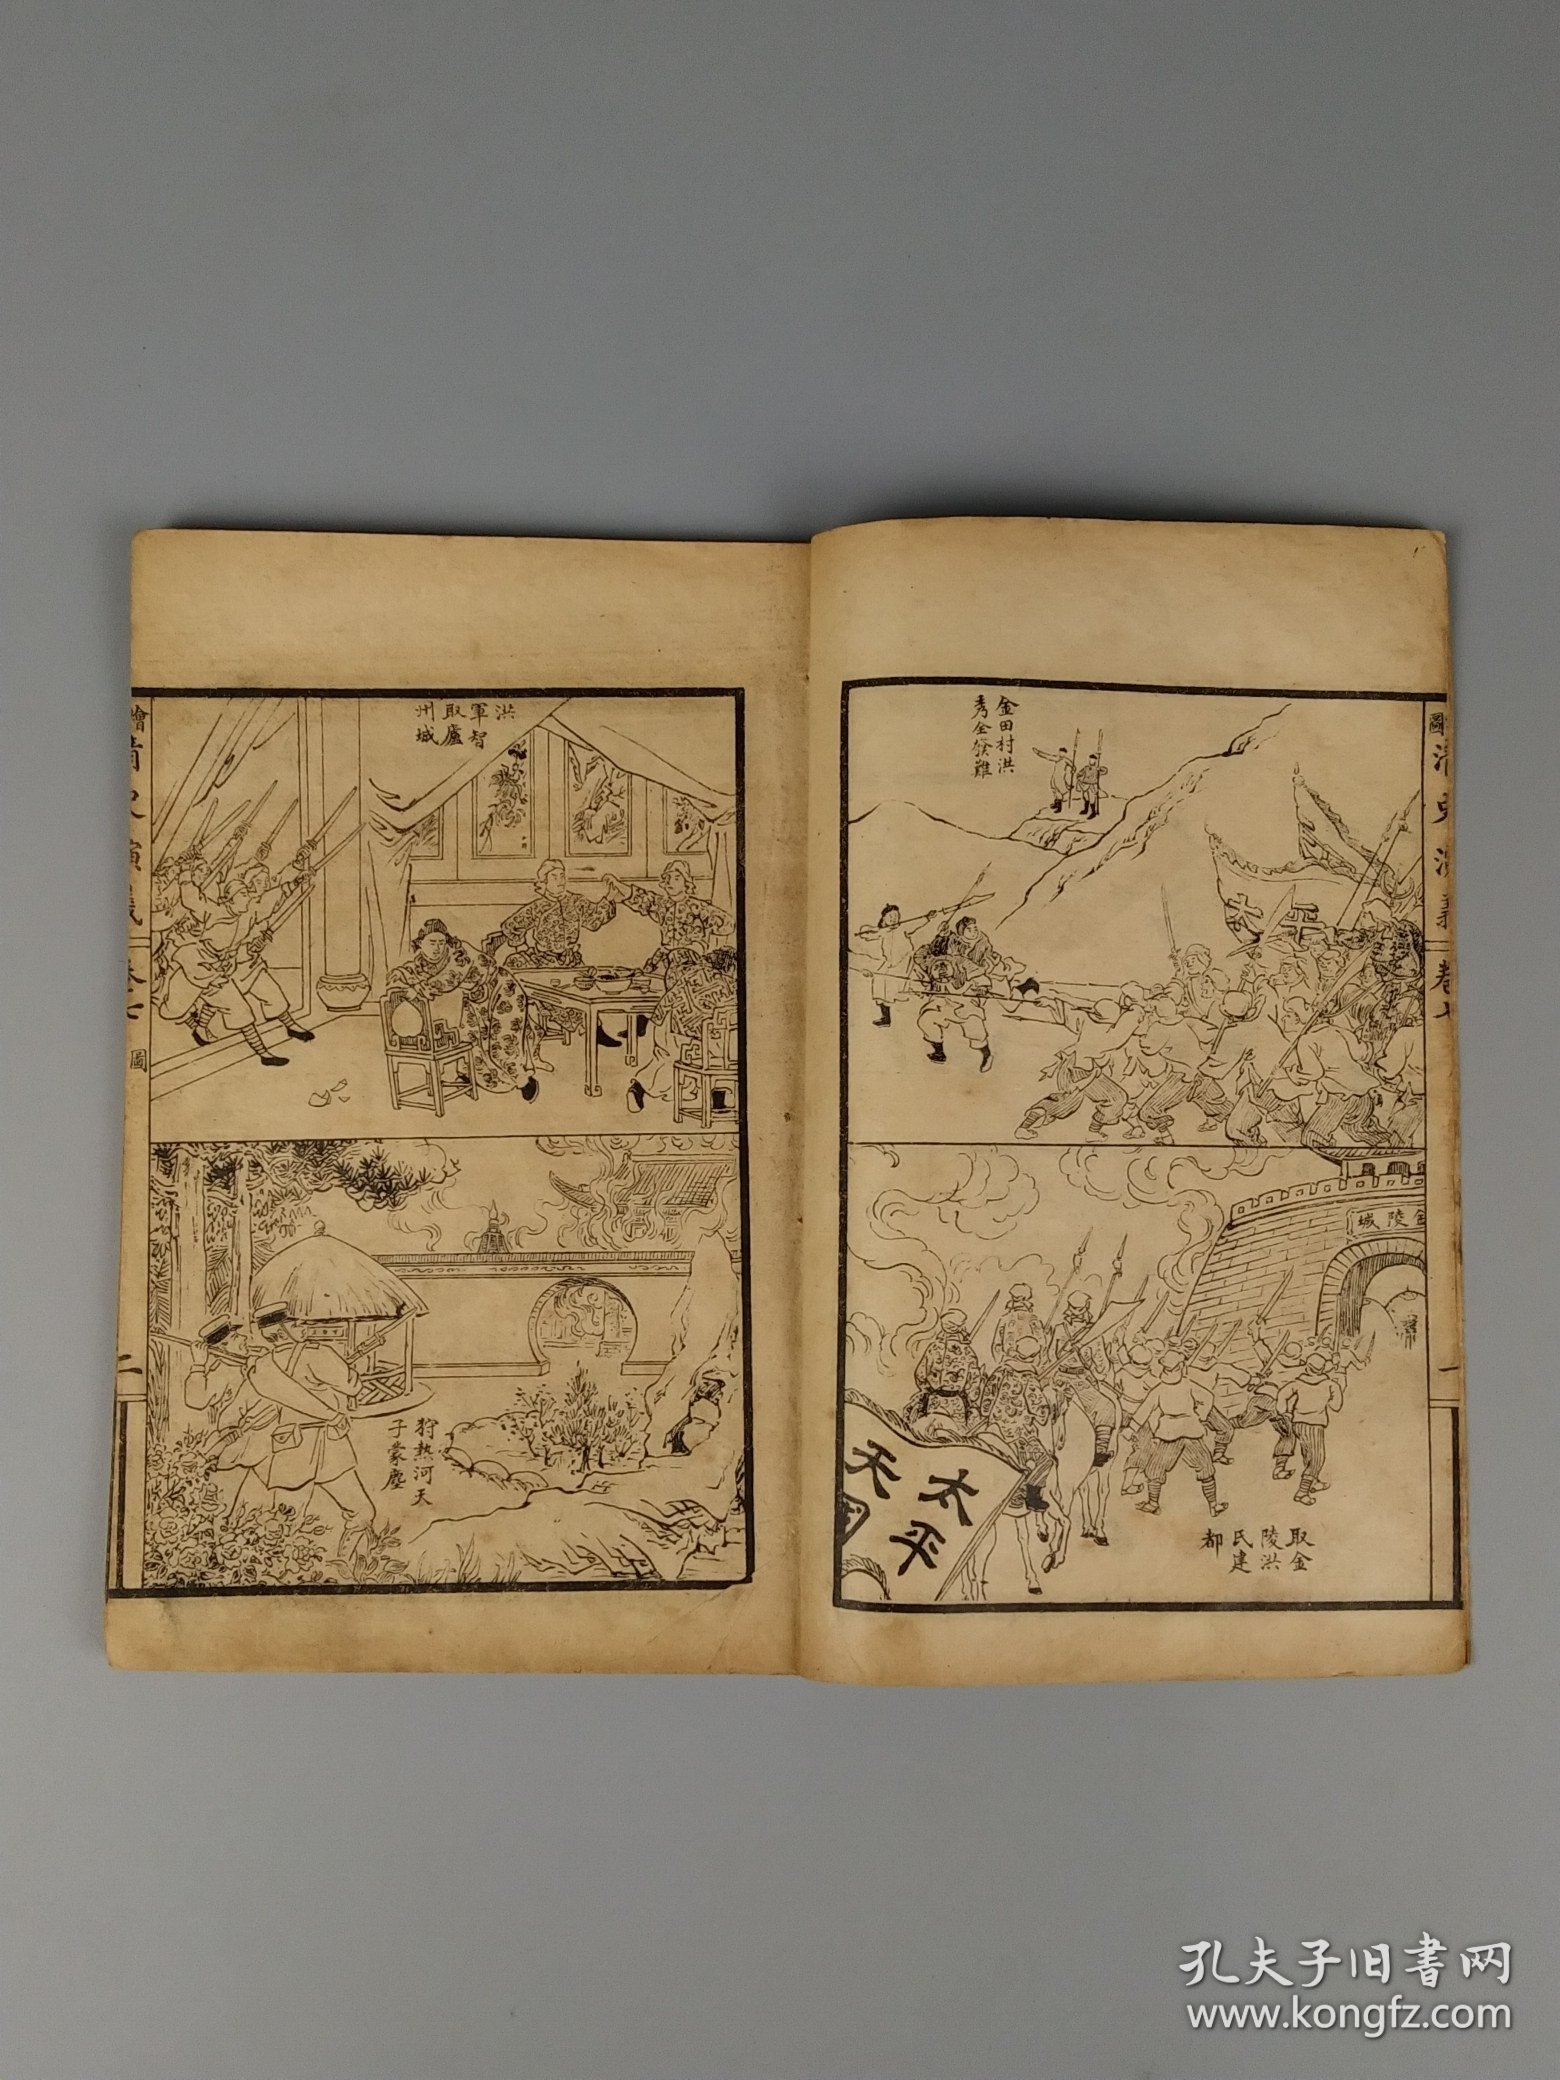 圖
清史演義
卷七
一
金田村洪
秀全發難
太平
金陵城
取金
陵洪
氏建
都
太平
天國
洪
軍智
取廬
州城
狩熱河天
子蒙塵
繪
清史演義
卷七
圖
二
孔夫子旧書网
www.kongfz.com